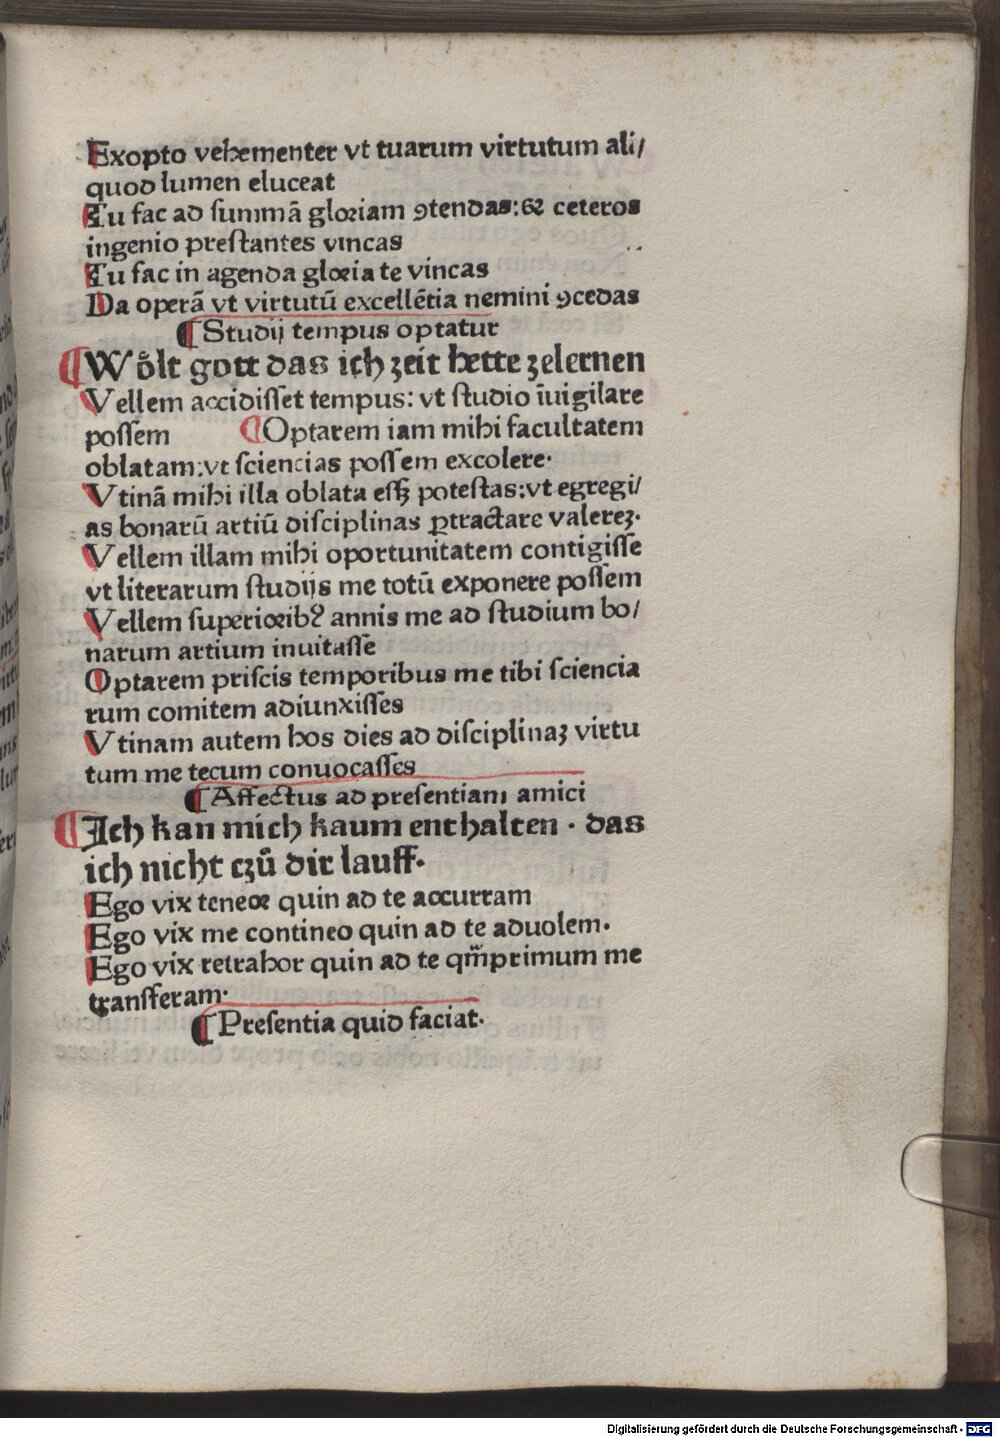 Exopto vehementer vt tuarum virtutum ali/
quod lumen eluceat
Tu fac ad summā gloriam ꝯtendas: & ceteros
ingenio prestantes vincas
Tu fac in agenda gloria te vincas
Da operā vt virtutū excellētia nemini ꝯcedas
¶ Studij tempus optatur
¶ Wo̊lt gott das ich zeit hette zelernen
Vellem accidisset tempus: vt studio īuigilare
possem ¶ Optarem iam mihi facultatem
oblatam: vt sciencias possem excolere.
Vtinā mihi illa oblata esꝫ potestas: vt egregi/
as bonarū artiū disciplinas ꝑtractare valereꝫ.
Vellem illam mihi oportunitatem contigisse
vt literarum studijs me totū exponere possem
Vellem superioribꝰ annis me ad studium bo/
narum artium inuitasse
Optarem priscis temporibus me tibi sciencia
rum comitem adiunxisses
Vtinam autem hos dies ad disciplinaꝫ virtu
tum me tecum conuocasses
¶ Affectus ad presentiam amici
¶ Ich kan mich kaum enthalten . das
ich nicht czu̇ dir lauff.
Ego vix teneor quin ad te accurram
Ego vix me contineo quin ad te aduolem.
Ego vix retrahor quin ad te qm̄primum me
transferam.
¶ Presentia quid faciat.
Digitalisierung gefördert durch die Deutsche Forschungsgemeinschaft - DFG